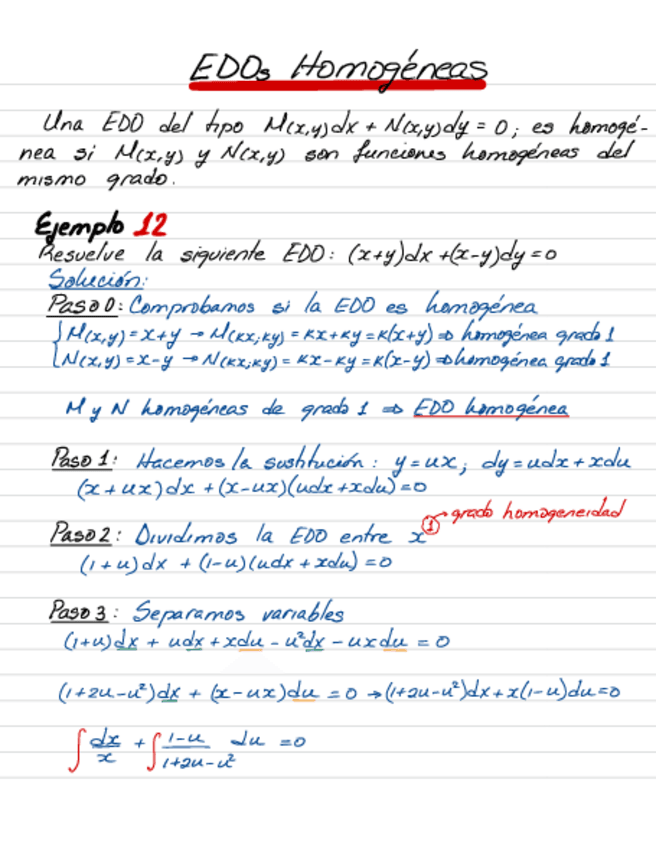 EDOs Homogéneas
Una EDO del tipo M(x,y)dx + N(x,y)dy = 0; es homogé-
nea si M(x,y) y N(x,y) son funciones homogéneas del
mismo grado.
Ejemplo 12
Resuelve la siguiente EDO: (x+y)dx +(x-y)dy=0
Solución:
Paso 0: Comprobamos si la EDO es homogénea
{M(x,y)=x+y → M(kx;ky) = kx+ky=k(x+y) ⇒ homogénea grado 1
{N(x,y)=x-y → N(kx;ky) = kx-ky=k(x-y) ⇒ homogénea grado 1
M y N homogéneas de grado 1 ⇒ EDO homogénea
Paso 1: Hacemos la sustitución: y=ux; dy=udx+xdu
(x+ux)dx +(x-ux)(udx+xdu)=0
Paso 2: Dividimos la EDO entre x^① → grado homogeneidad
(1+u)dx + (1-u)(udx + xdu) =0
Paso 3: Separamos variables
(1+u)dx + udx + xdu - u²dx - uxdu = 0
(1+2u-u²)dx + (x-ux)du =0 → (1+2u-u²)dx+x(1-u)du=0
∫ dx/x + ∫ (1-u)/(1+2u-u²) du =0